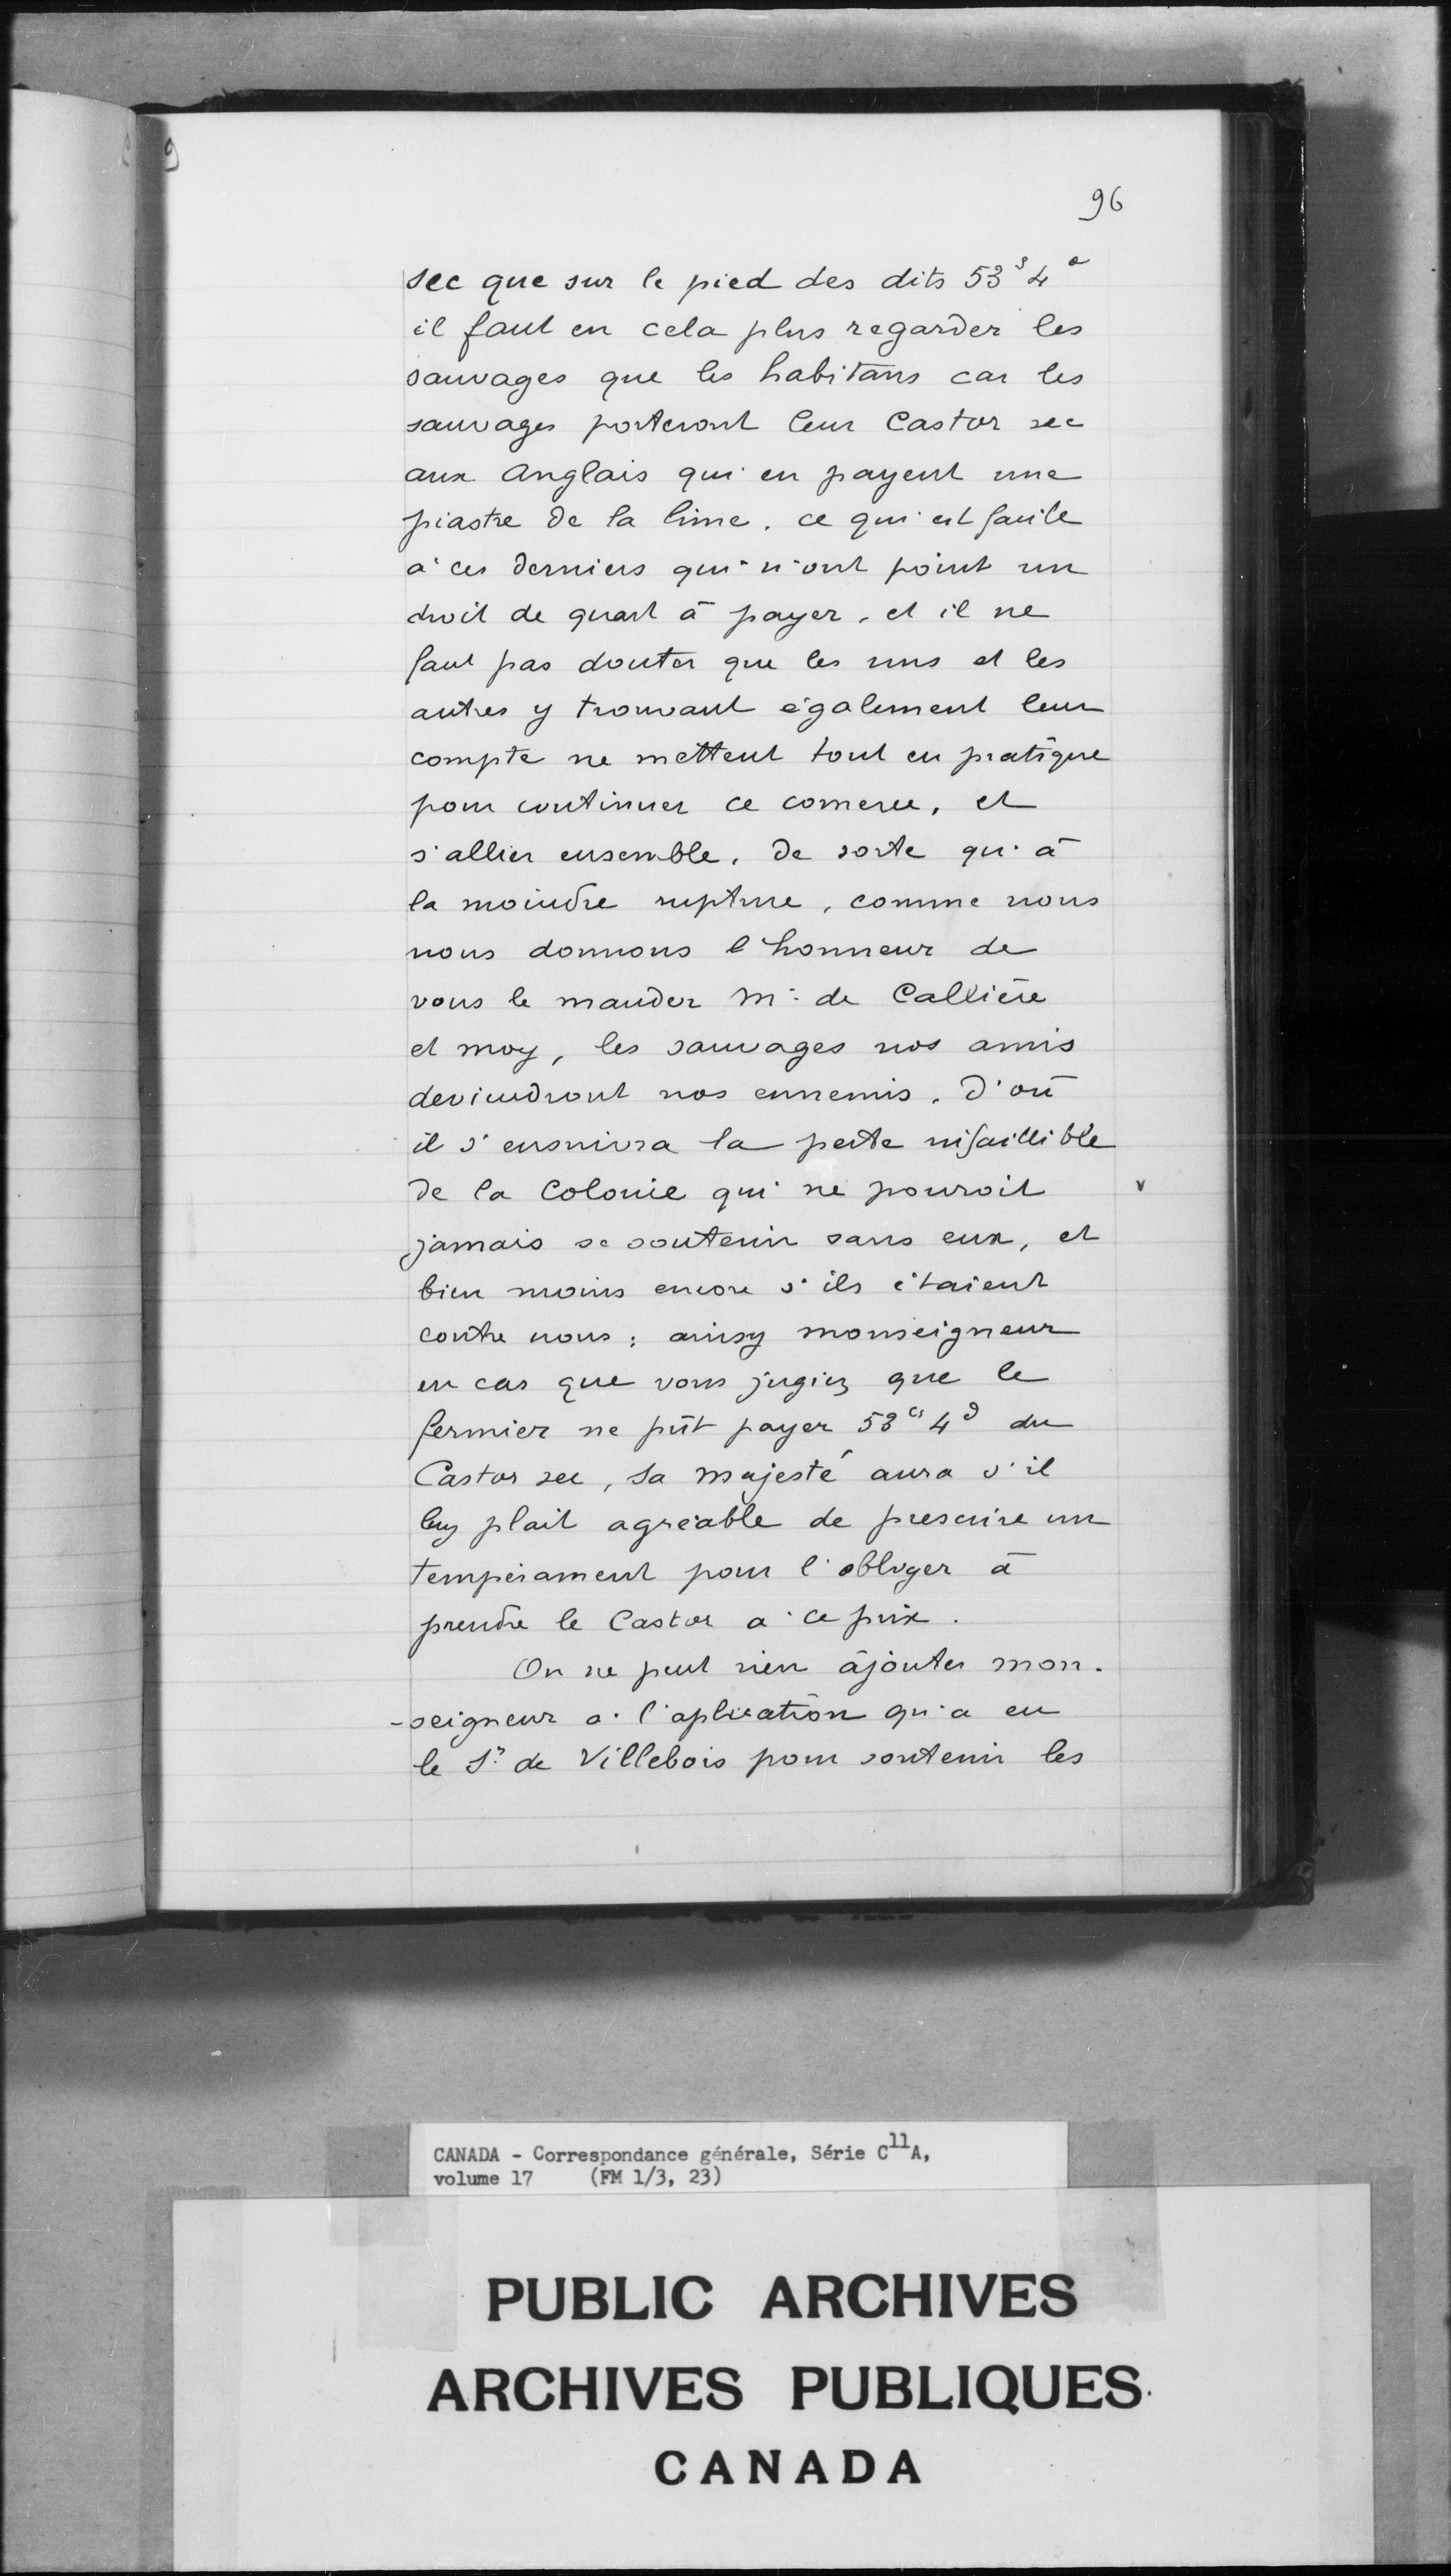 96
sec que sur le pied des dits 53ˢ 4ᵈ
il faut en cela plus regarder les
sauvages que les habitans car les
sauvages porteront leur Castor sec
aux Anglais qui en payent une
piastre de la livre, ce qui est facile
à ces derniers qui n'ont point un
droit de quart à payer, et il ne
faut pas douter que les uns et les
autres y trouvant également leur
compte ne mettent tout en pratique
pour continuer ce comerce, et
s'allier ensemble, de sorte qu'à
la moindre rupture, comme nous
nous donnons l'honneur de
vous le mander Mr de Callière
et moy, les sauvages nos amis
deviendront nos ennemis, d'où
il s'ensuivra la perte infaillible
de la Colonie qui ne pouroit v
jamais se soutenir sans eux, et
bien moins encore s'ils étaient
contre nous: ainsy monseigneur
en cas que vous jugiez que le
fermier ne pût payer 53ˢ 4ᵈ du
Castor sec, Sa Majesté aura s'il
luy plait agréable de prescrire un
tempérament pour l'obliger à
prendre le Castor à ce prix.
On ne peut rien ajouter mon-
-seigneur à l'aplication qu'a eu
le Sr de Villebois pour soutenir les
CANADA - Correspondance générale, Série C¹¹A,
volume 17 (FM 1/3, 23)
PUBLIC ARCHIVES
ARCHIVES PUBLIQUES
CANADA